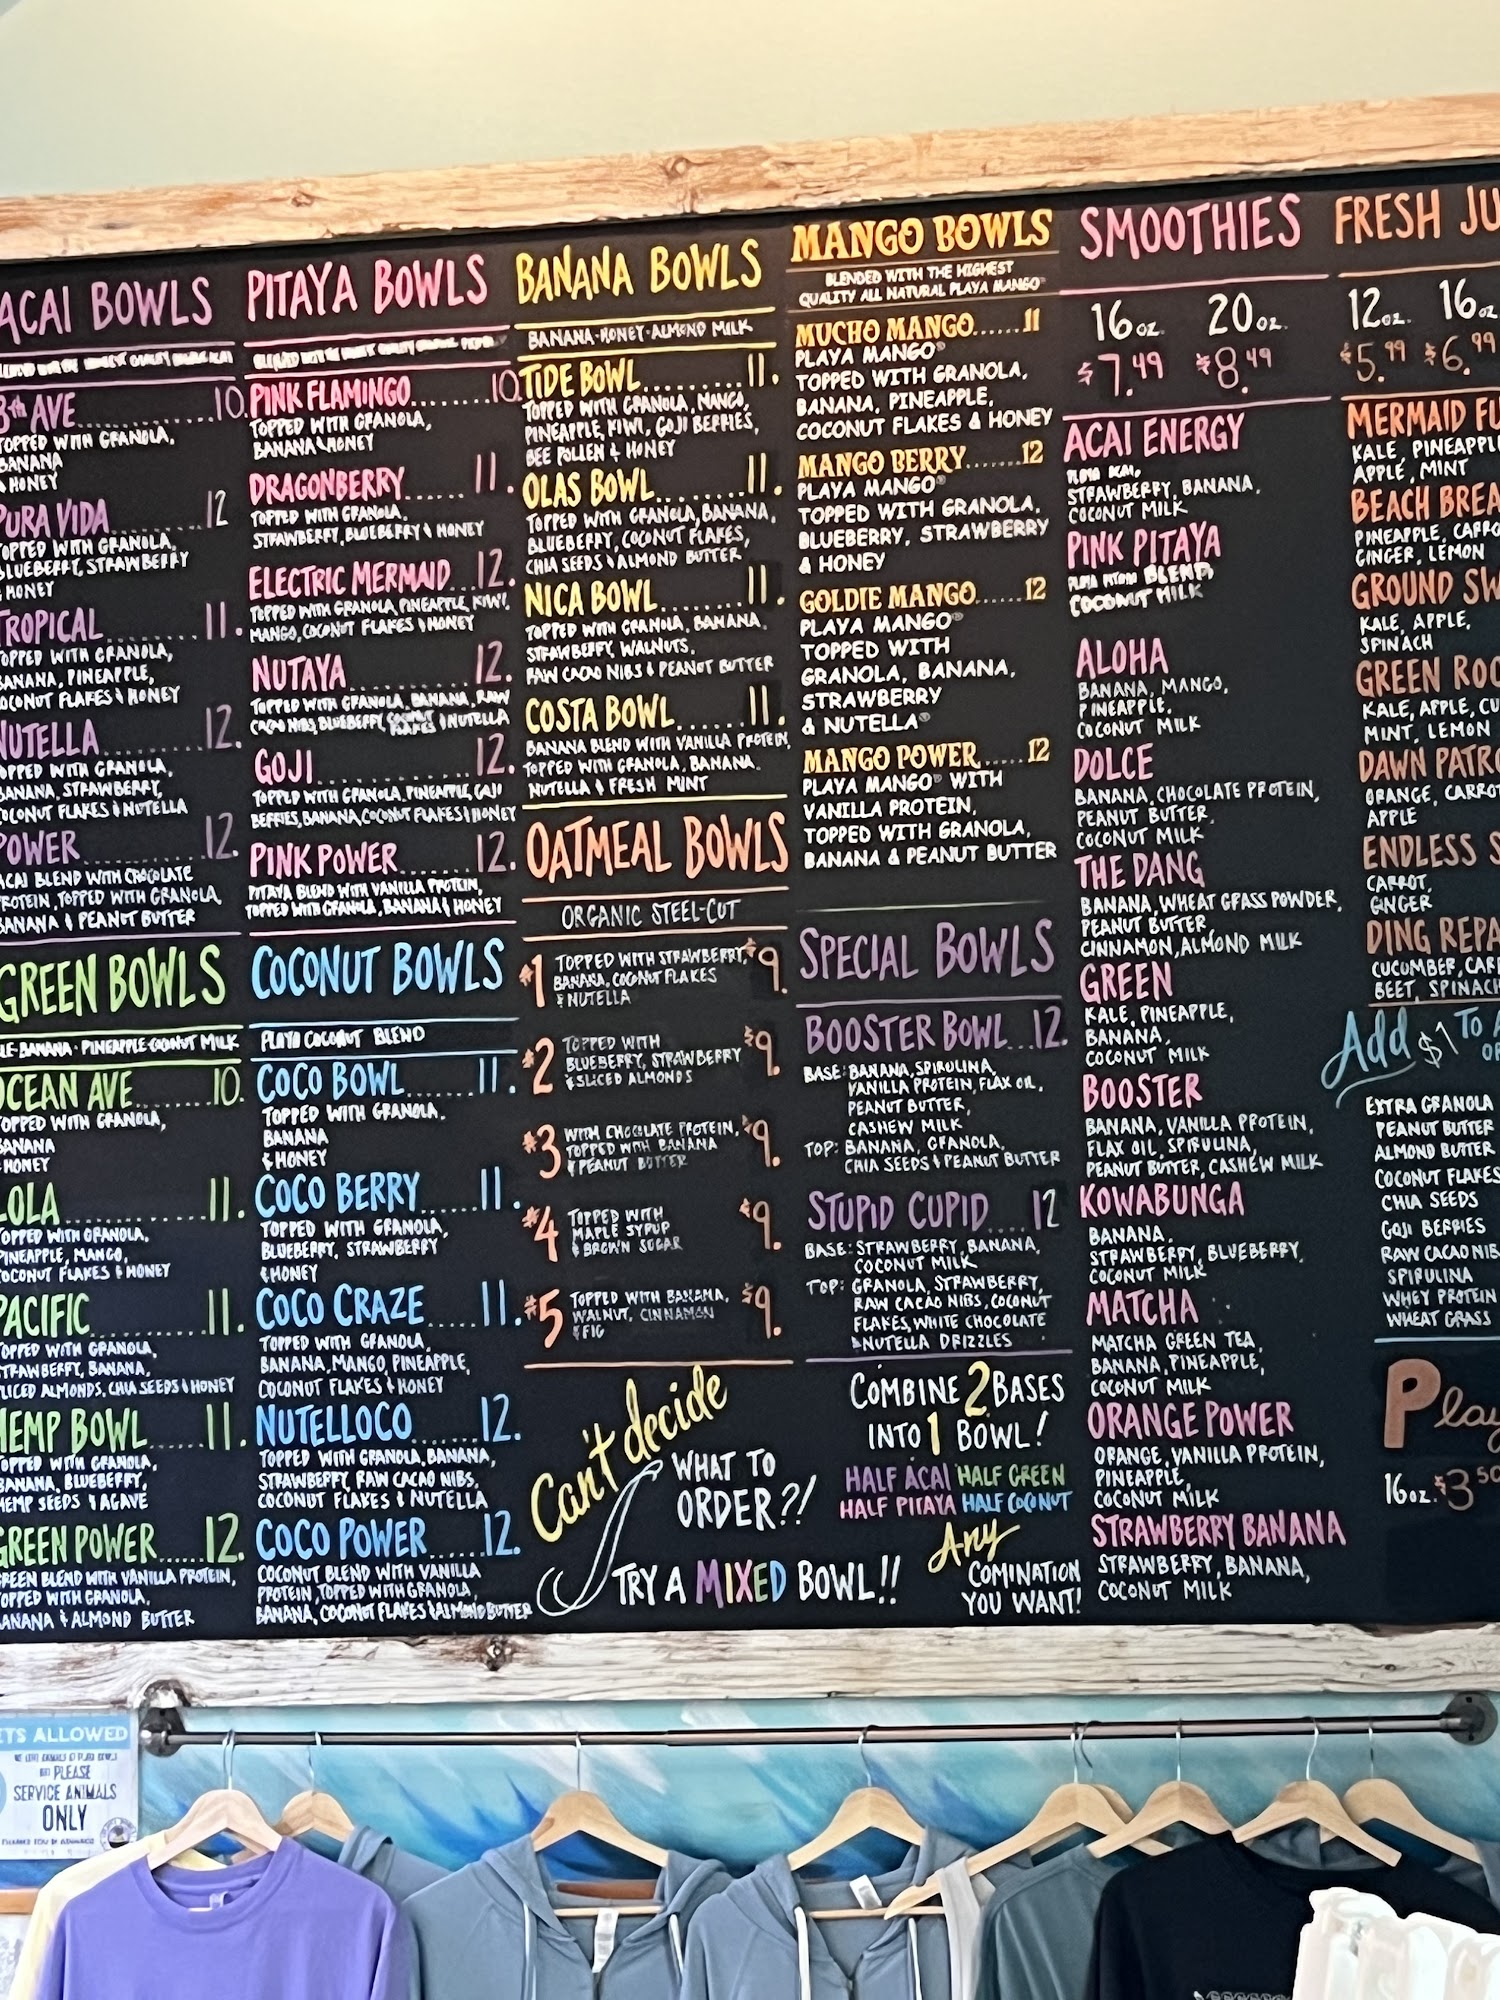 ACAI BOWLS
8th AVE.........10.
TOPPED WITH GRANOLA,
BANANA
& HONEY
PURA VIDA.........12
TOPPED WITH GRANOLA,
BLUEBERRY, STRAWBERRY
& HONEY
TROPICAL.........11.
TOPPED WITH GRANOLA,
BANANA, PINEAPPLE,
COCONUT FLAKES & HONEY
NUTELLA.........12.
TOPPED WITH GRANOLA,
BANANA, STRAWBERRY,
COCONUT FLAKES & NUTELLA
POWER.........12.
ACAI BLEND WITH CHOCOLATE
PROTEIN, TOPPED WITH GRANOLA,
BANANA & PEANUT BUTTER
GREEN BOWLS
BANANA · PINEAPPLE · COCONUT MILK
OCEAN AVE.......10.
TOPPED WITH GRANOLA,
BANANA
HONEY
LOLA.........11.
TOPPED WITH GRANOLA,
PINEAPPLE, MANGO,
COCONUT FLAKES & HONEY
PACIFIC.........11.
TOPPED WITH GRANOLA,
STRAWBERRY, BANANA,
SLICED ALMONDS, CHIA SEEDS & HONEY
HEMP BOWL.....11.
TOPPED WITH GRANOLA,
BANANA, BLUEBERRY,
HEMP SEEDS & AGAVE
GREEN POWER.....12.
GREEN BLEND WITH VANILLA PROTEIN,
TOPPED WITH GRANOLA,
BANANA & ALMOND BUTTER
PITAYA BOWLS
PINK FLAMINGO........10.
TOPPED WITH GRANOLA,
BANANA & HONEY
DRAGONBERRY......11.
TOPPED WITH GRANOLA,
STRAWBERRY, BLUEBERRY & HONEY
ELECTRIC MERMAID...12.
TOPPED WITH GRANOLA, PINEAPPLE, KIWI,
MANGO, COCONUT FLAKES & HONEY
NUTAYA............12.
TOPPED WITH GRANOLA, BANANA, RAW
CACAO NIBS, BLUEBERRY, COCONUT FLAKES & NUTELLA
GOJI..............12.
TOPPED WITH GRANOLA, PINEAPPLE, GOJI
BERRIES, BANANA, COCONUT FLAKES & HONEY
PINK POWER........12.
PITAYA BLEND WITH VANILLA PROTEIN,
TOPPED WITH GRANOLA, BANANA & HONEY
COCONUT BOWLS
PLAYA COCONUT BLEND
COCO BOWL........11.
TOPPED WITH GRANOLA,
BANANA
& HONEY
COCO BERRY......11.
TOPPED WITH GRANOLA,
BLUEBERRY, STRAWBERRY
& HONEY
COCO CRAZE......11.
TOPPED WITH GRANOLA,
BANANA, MANGO, PINEAPPLE,
COCONUT FLAKES & HONEY
NUTELLOCO.......12.
TOPPED WITH GRANOLA, BANANA,
STRAWBERRY, RAW CACAO NIBS,
COCONUT FLAKES & NUTELLA
COCO POWER......12.
COCONUT BLEND WITH VANILLA
PROTEIN, TOPPED WITH GRANOLA,
BANANA, COCONUT FLAKES & ALMOND BUTTER
BANANA BOWLS
BANANA · HONEY · ALMOND MILK
TIDE BOWL.........11.
TOPPED WITH GRANOLA, MANGO,
PINEAPPLE, KIWI, GOJI BERRIES,
BEE POLLEN & HONEY
OLAS BOWL........11.
TOPPED WITH GRANOLA, BANANA,
BLUEBERRY, COCONUT FLAKES,
CHIA SEEDS & ALMOND BUTTER
NICA BOWL........11.
TOPPED WITH GRANOLA, BANANA,
STRAWBERRY, WALNUTS,
RAW CACAO NIBS & PEANUT BUTTER
COSTA BOWL......11.
BANANA BLEND WITH VANILLA PROTEIN,
TOPPED WITH GRANOLA, BANANA,
NUTELLA & FRESH MINT
OATMEAL BOWLS
ORGANIC STEEL-CUT
#1 TOPPED WITH STRAWBERRY, $9.
BANANA, COCONUT FLAKES
& NUTELLA
#2 TOPPED WITH $9.
BLUEBERRY, STRAWBERRY
& SLICED ALMONDS
#3 WITH CHOCOLATE PROTEIN, $9.
TOPPED WITH BANANA
& PEANUT BUTTER
#4 TOPPED WITH $9.
MAPLE SYRUP
& BROWN SUGAR
#5 TOPPED WITH BANANA, $9.
WALNUT, CINNAMON
& FIG
Can't decide
WHAT TO
ORDER?!
TRY A MIXED BOWL!!
MANGO BOWLS
BLENDED WITH THE HIGHEST
QUALITY ALL NATURAL PLAYA MANGO®
MUCHO MANGO......11
PLAYA MANGO®
TOPPED WITH GRANOLA,
BANANA, PINEAPPLE,
COCONUT FLAKES & HONEY
MANGO BERRY.......12
PLAYA MANGO®
TOPPED WITH GRANOLA,
BLUEBERRY, STRAWBERRY
& HONEY
GOLDIE MANGO......12
PLAYA MANGO®
TOPPED WITH
GRANOLA, BANANA,
STRAWBERRY
& NUTELLA®
MANGO POWER.....12
PLAYA MANGO® WITH
VANILLA PROTEIN,
TOPPED WITH GRANOLA,
BANANA & PEANUT BUTTER
SPECIAL BOWLS
BOOSTER BOWL...12.
BASE: BANANA, SPIRULINA,
VANILLA PROTEIN, FLAX OIL,
PEANUT BUTTER,
CASHEW MILK
TOP: BANANA, GRANOLA,
CHIA SEEDS & PEANUT BUTTER
STUPID CUPID....12
BASE: STRAWBERRY, BANANA,
COCONUT MILK
TOP: GRANOLA, STRAWBERRY,
RAW CACAO NIBS, COCONUT
FLAKES, WHITE CHOCOLATE
& NUTELLA DRIZZLES
COMBINE 2 BASES
INTO 1 BOWL!
HALF ACAI HALF GREEN
HALF PITAYA HALF COCONUT
Any
COMINATION
YOU WANT!
SMOOTHIES
16oz. 20oz.
$7.49 $8.49
ACAI ENERGY
PLAYA ACAI,
STRAWBERRY, BANANA,
COCONUT MILK
PINK PITAYA
PLAYA PITAYA BLEND,
COCONUT MILK
ALOHA
BANANA, MANGO,
PINEAPPLE,
COCONUT MILK
DOLCE
BANANA, CHOCOLATE PROTEIN,
PEANUT BUTTER,
COCONUT MILK
THE DANG
BANANA, WHEAT GRASS POWDER,
PEANUT BUTTER,
CINNAMON, ALMOND MILK
GREEN
KALE, PINEAPPLE,
BANANA,
COCONUT MILK
BOOSTER
BANANA, VANILLA PROTEIN,
FLAX OIL, SPIRULINA,
PEANUT BUTTER, CASHEW MILK
KOWABUNGA
BANANA,
STRAWBERRY, BLUEBERRY,
COCONUT MILK
MATCHA
MATCHA GREEN TEA,
BANANA, PINEAPPLE,
COCONUT MILK
ORANGE POWER
ORANGE, VANILLA PROTEIN,
PINEAPPLE,
COCONUT MILK
STRAWBERRY BANANA
STRAWBERRY, BANANA,
COCONUT MILK
FRESH JU
12oz. 16oz
$5.99 $6.99
MERMAID FU
KALE, PINEAPPL
APPLE, MINT
BEACH BREA
PINEAPPLE, CARRO
GINGER, LEMON
GROUND SW
KALE, APPLE,
SPINACH
GREEN ROO
KALE, APPLE, CU
MINT, LEMON
DAWN PATRO
ORANGE, CARROT
APPLE
ENDLESS S
CARROT,
GINGER
DING REPA
CUCUMBER, CAR
BEET, SPINACH
Add $1 TO A
OR
EXTRA GRANOLA
PEANUT BUTTER
ALMOND BUTTER
COCONUT FLAKES
CHIA SEEDS
GOJI BERRIES
RAW CACAO NIB
SPIRULINA
WHEY PROTEIN
WHEAT GRASS
Play
16oz. $3.50
ETS ALLOWED
PLEASE
SERVICE ANIMALS
ONLY